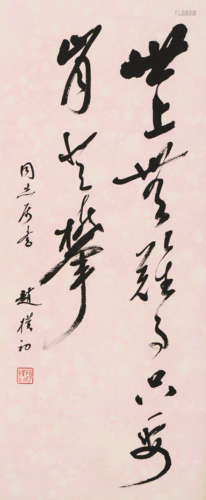 世上无难事只要
肯登攀
同志属书
赵朴初